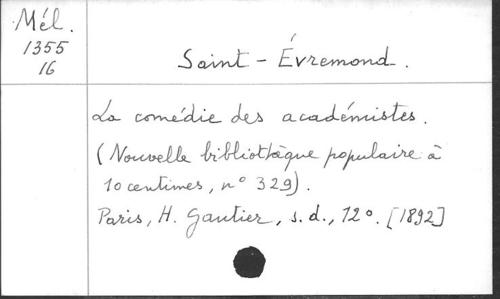 Mél.
1355
16
Saint-Évremond.
La comédie des académistes.
(Nouvelle bibliothèque populaire à
10 centimes, n° 329).
Paris, H. Gautier, s.d., 12°. [1892]